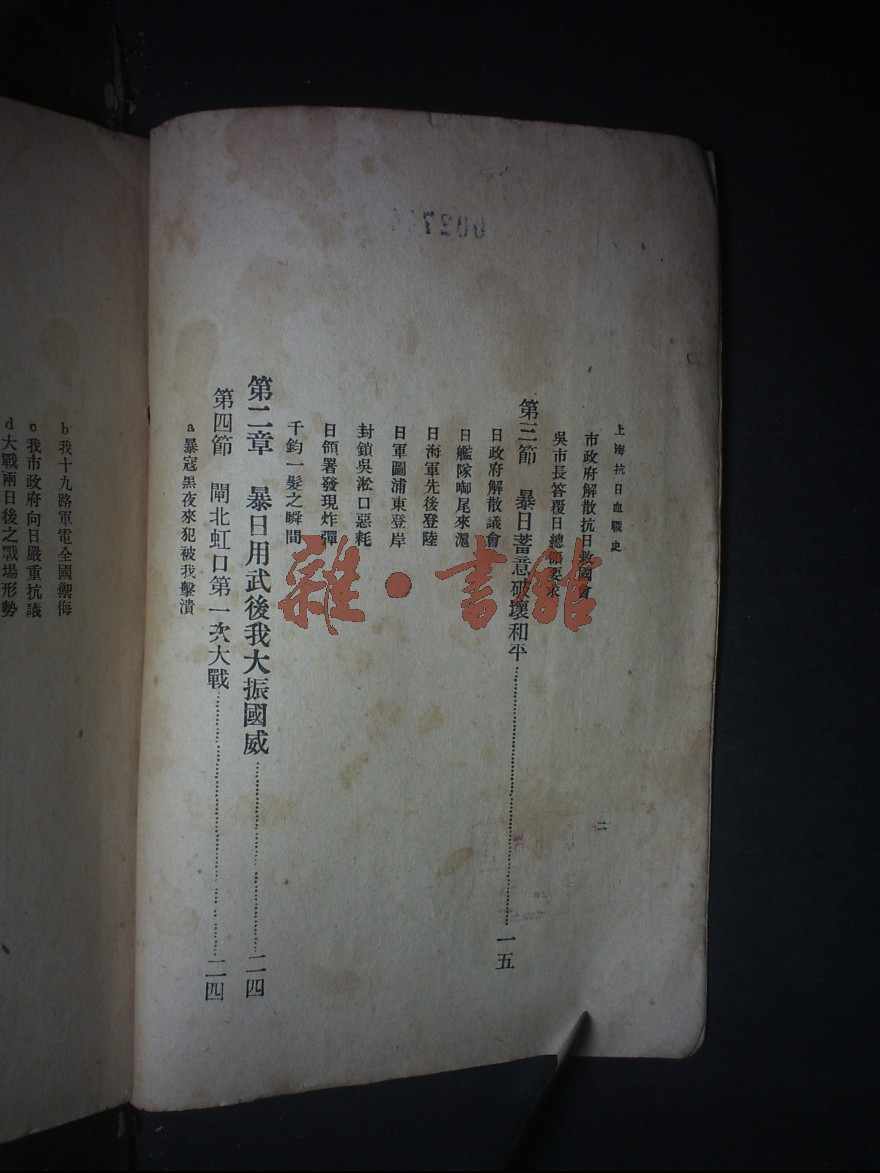 上海抗日血戰史
二
市政府解散抗日救國會
吳市長答覆日總領要求
第三節 暴日蓄意破壞和平 一五
日政府解散議會
日艦隊啣尾來滬
日海軍先後登陸
日軍圖浦東登岸
封鎖吳淞口惡耗
日領署發現炸彈
千鈞一髮之瞬間
第二章 暴日用武後我大振國威 二四
第四節 閘北虹口第一次大戰 二四
a暴寇黑夜來犯被我擊潰
b我十九路軍電全國禦侮
c我市政府向日嚴重抗議
d大戰兩日後之戰場形勢
雜·書館